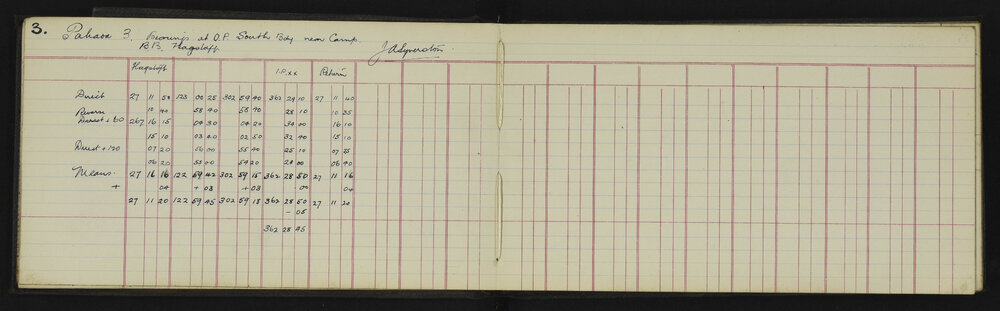 3. Pahaoa 3. Bearings at O.P. South Bdy near Camp.
R.B. Flagstaff.
Flagstaff I.P.xx Return
Direct 27 11 50 123 00 25 302 59 40 362 29 10 27 11 40
Revers 10 40 58 40 58 40 28 10 10 35
Direct + 60 267 16 15 04 30 04 20 34 00 16 10
15 10 03 20 02 50 32 40 15 10
Direct + 120 07 20 56 00 55 40 25 10 07 25
06 20 55 00 54 20 24 00 06 40
Means. 27 16 16 122 59 42 302 59 15 362 28 50 27 11 16
+ 04 + 03 + 03 00 04
27 11 20 122 59 45 302 59 18 362 28 50 27 11 20
- 05
362 28 45